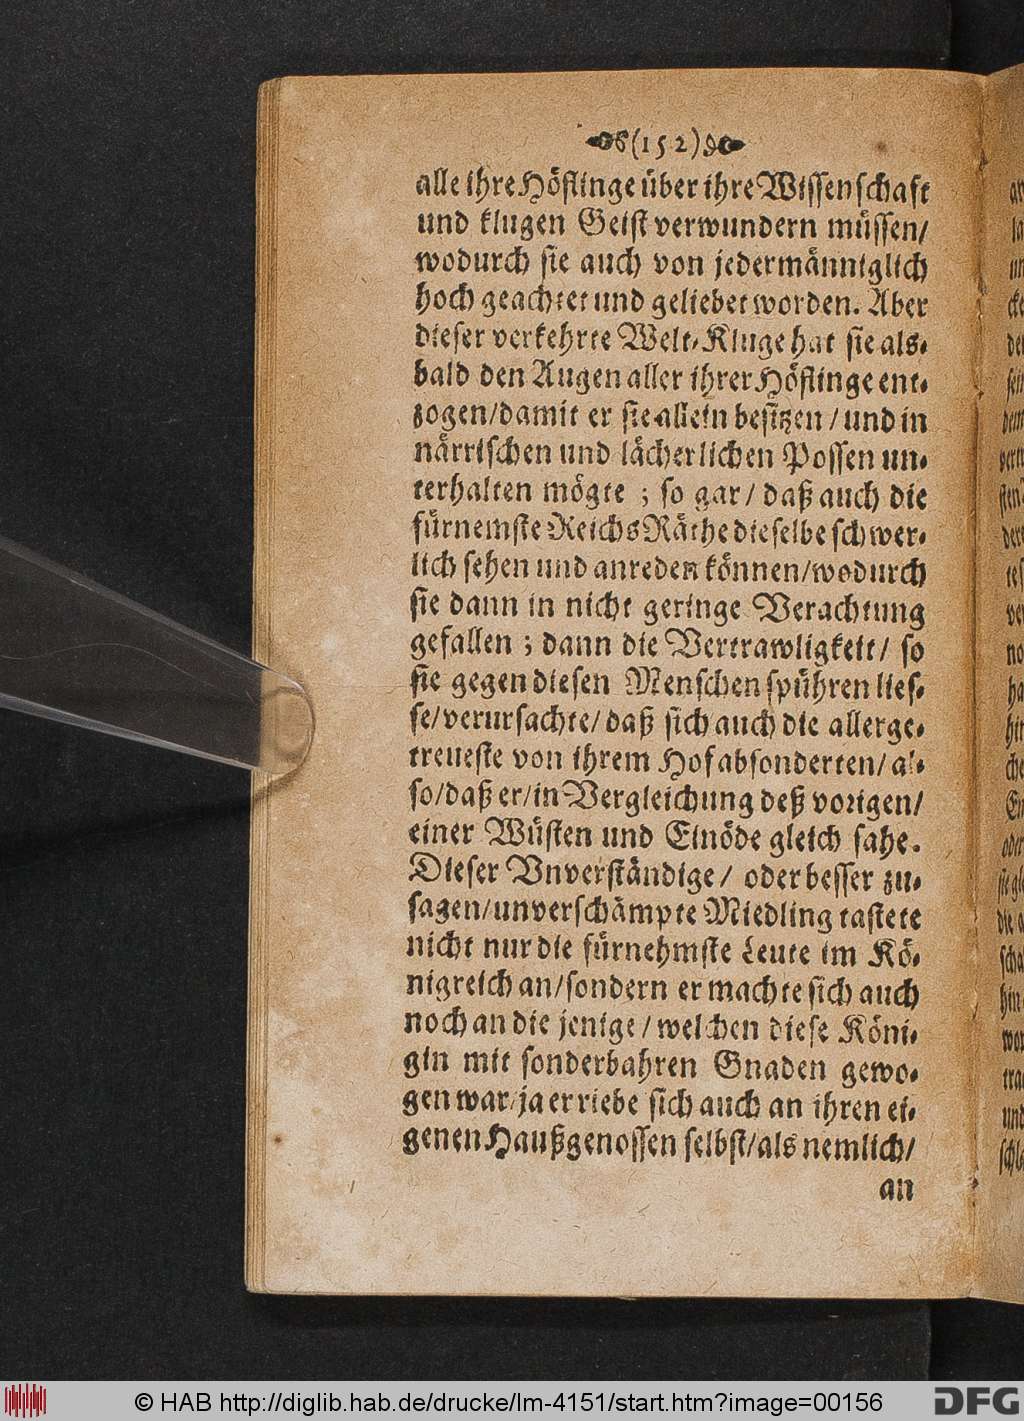 (152)
alle ihre Höflinge über ihre Wissenschaft
und klugen Geist verwundern müssen/
wodurch sie auch von jedermänniglich
hoch geachtet und geliebet worden. Aber
dieser verkehrte Welt-Kluge hat sie als-
bald den Augen aller ihrer Höflinge ent-
zogen/damit er sie allein besitzen / und in
närrischen und lächerlichen Possen un-
terhalten mögte ; so gar/ daß auch die
fürnemste Reichs Räthe dieselbe schwer-
lich sehen und anreden können/wodurch
sie dann in nicht geringe Verachtung
gefallen ; dann die Vertrawligkeit/ so
sie gegen diesen Menschen spühren lies-
se/verursachte/ daß sich auch die allerge-
treueste von ihrem Hof absonderten/ al-
so/daß er/in Vergleichung deß vorigen/
einer Wüsten und Einöde gleich sahe.
Dieser Vnverständige/ oder besser zu-
sagen/unverschämpte Miedling tastete
nicht nur die fürnehmste Leute im Kö-
nigreich an/sondern er machte sich auch
noch an die jenige / welchen diese Köni-
gin mit sonderbahren Gnaden gewo-
gen war/ja er riebe sich auch an ihren ei-
genen Haußgenossen selbst/als nemlich/
an
© HAB http://diglib.hab.de/drucke/lm-4151/start.htm?image=00156
DFG